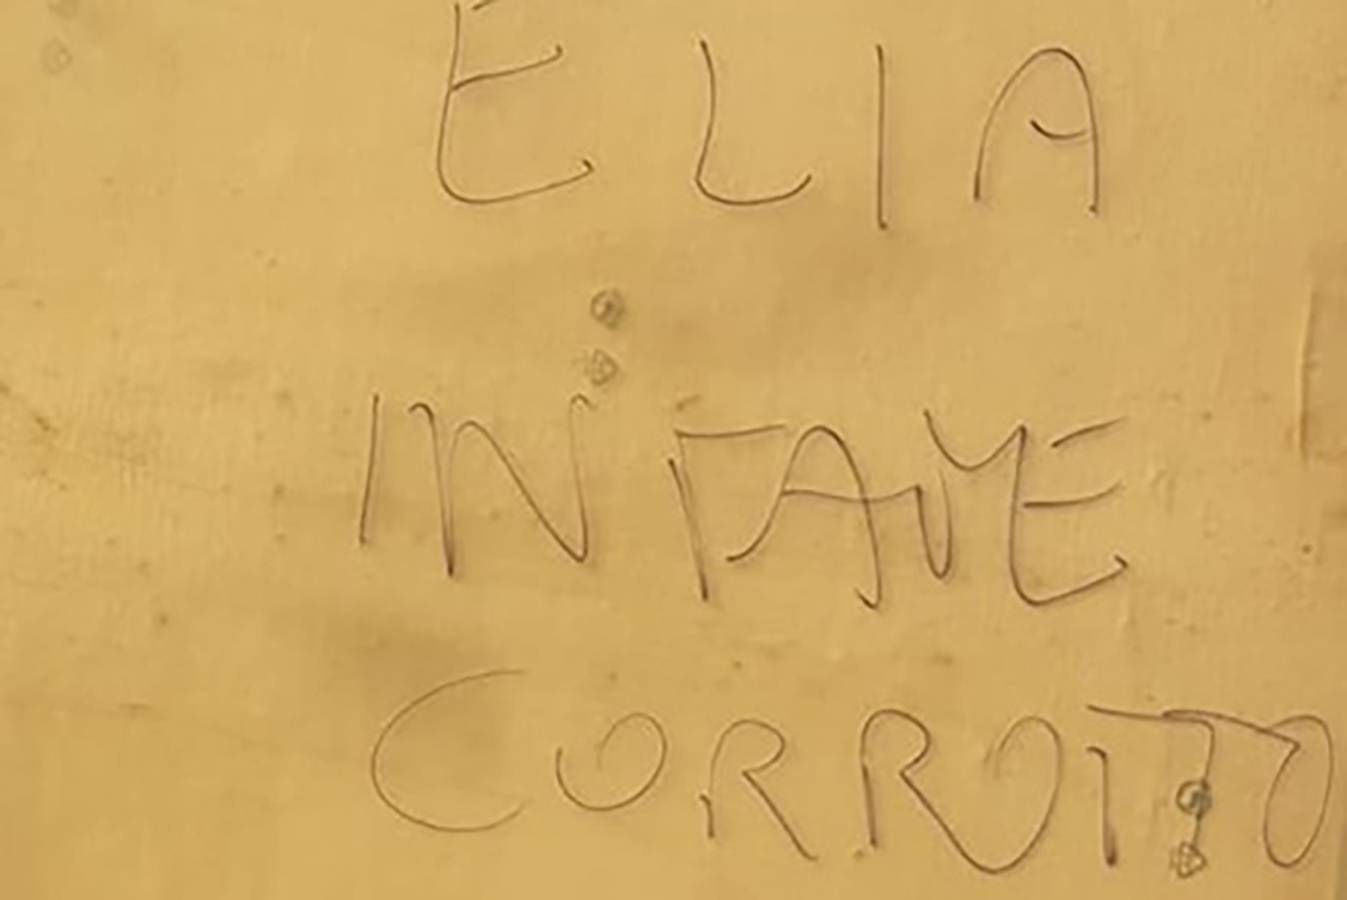 ELIA
INFAME
CORROTTO